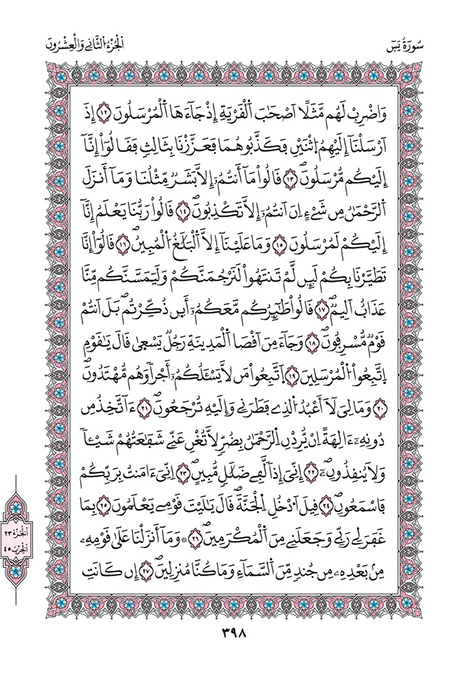 سُورَةُ يَسٓ
اَلْجُزْءُ الثَّانِي وَالْعِشْرُونَ
وَاضْرِبْ لَهُم مَّثَلًا اَصْحَٰبَ اَلْقَرْيَةِ إِذْ جَآءَهَا اَلْمُرْسَلُونَ ١٢ إِذَ
اَرْسَلْنَآ إِلَيْهِمُ اُثْنَيْنِ فَكَذَّبُوهُمَا فَعَزَّزْنَا بِثَالِثٖ فَقَالُوٓاْ إِنَّآ
إِلَيْكُم مُّرْسَلُونَ ١٣ قَالُواْ مَآ أَنتُمُۥٓ إِلَّا بَشَرٞ مِّثْلُنَا وَمَآ أَنزَلَ
اَلرَّحْمَٰنُ مِن شَےْءٍ اِنَ اَنتُمُۥٓ إِلَّا تَكْذِبُونَ ١٤ قَالُواْ رَبُّنَا يَعْلَمُ إِنَّآ
إِلَيْكُمْ لَمُرْسَلُونَ ١٥ وَمَا عَلَيْنَآ إِلَّا اَلْبَلَٰغُ اُلْمُبِينُ ١٦ قَالُوٓاْ إِنَّا
تَطَيَّرْنَا بِكُمْ لَئِن لَّمْ تَنتَهُواْ لَنَرْجُمَنَّكُمْ وَلَيَمَسَّنَّكُم مِّنَّا
عَذَابٌ اَلِيمٞ ١٧ قَالُواْ طَٰٓئِرُكُم مَّعَكُمُۥٓ أَئِن ذُكِّرْتُم بَلَ اَنتُمْ
قَوْمٞ مُّسْرِفُونَ ١٨ وَجَآءَ مِنَ اَقْصَا اَلْمَدِينَةِ رَجُلٞ يَسْعَىٰ قَالَ يَٰقَوْمِ
اِتَّبِعُواْ اُلْمُرْسَلِينَ ١٩ اَتَّبِعُواْ مَن لَّا يَسْـَٔلُكُمُۥٓ أَجْراٗ وَهُم مُّهْتَدُونَ
٢٠ وَمَا لِيَ لَآ أَعْبُدُ اُلذِے فَطَرَنِے وَإِلَيْهِ تُرْجَعُونَ ٢١ ءَآتَّخِذُ مِن
دُونِهِۦٓ ءَالِهَةً اِنْ يُّرِدْنِ اِلرَّحْمَٰنُ بِضُرّٖ لَّا تُغْنِ عَنِّے شَفَٰعَتُهُمْ شَيْـٔاٗ
وَلَا يُنقِذُونِۦٓ ٢٢ إِنِّيَ إِذاٗ لَّفِے ضَلَٰلٖ مُّبِينٍ ٢٣ اِنِّيَ ءَامَنتُ بِرَبِّكُمْ
فَاسْمَعُونِ ٢٤ قِيلَ اَدْخُلِ اِلْجَنَّةَ قَالَ يَٰلَيْتَ قَوْمِے يَعْلَمُونَ ٢٥ بِمَا
غَفَرَ لِے رَبِّے وَجَعَلَنِے مِنَ اَلْمُكْرَمِينَ ٢٦ وَمَآ أَنزَلْنَا عَلَىٰ قَوْمِهِۦ
مِنۢ بَعْدِهِۦ مِن جُندٖ مِّنَ اَلسَّمَآءِ وَمَا كُنَّا مُنزِلِينَ ٢٧ إِن كَانَتِ
الجزء ٢٣
الحزب ٤٥
٣٩٨